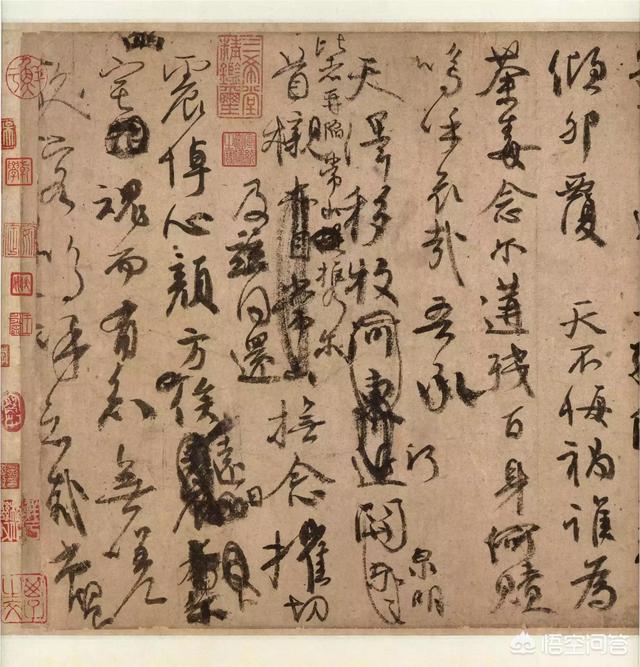 傾卵覆 天不悔禍誰為
荼毒念爾遘殘百身何贖
嗚呼哀哉 吾承
天澤移牧河東近河關 泉明
比者再陷常山攜爾
首櫬 常山 撫念摧切
及茲同還
震悼心顏方俟遠日
宅 魂而有知無嗟
久客嗚呼哀哉尚饗
三希堂精鑑璽
宜子孫
悟空问答